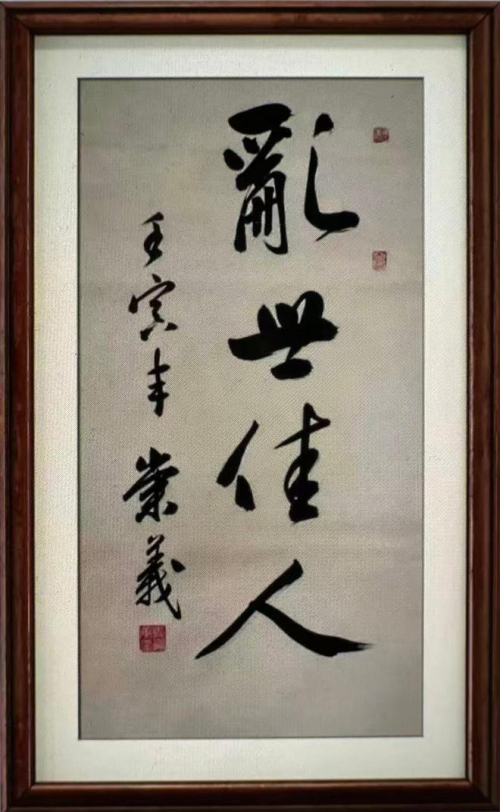 亂世佳人
壬寅年 業義